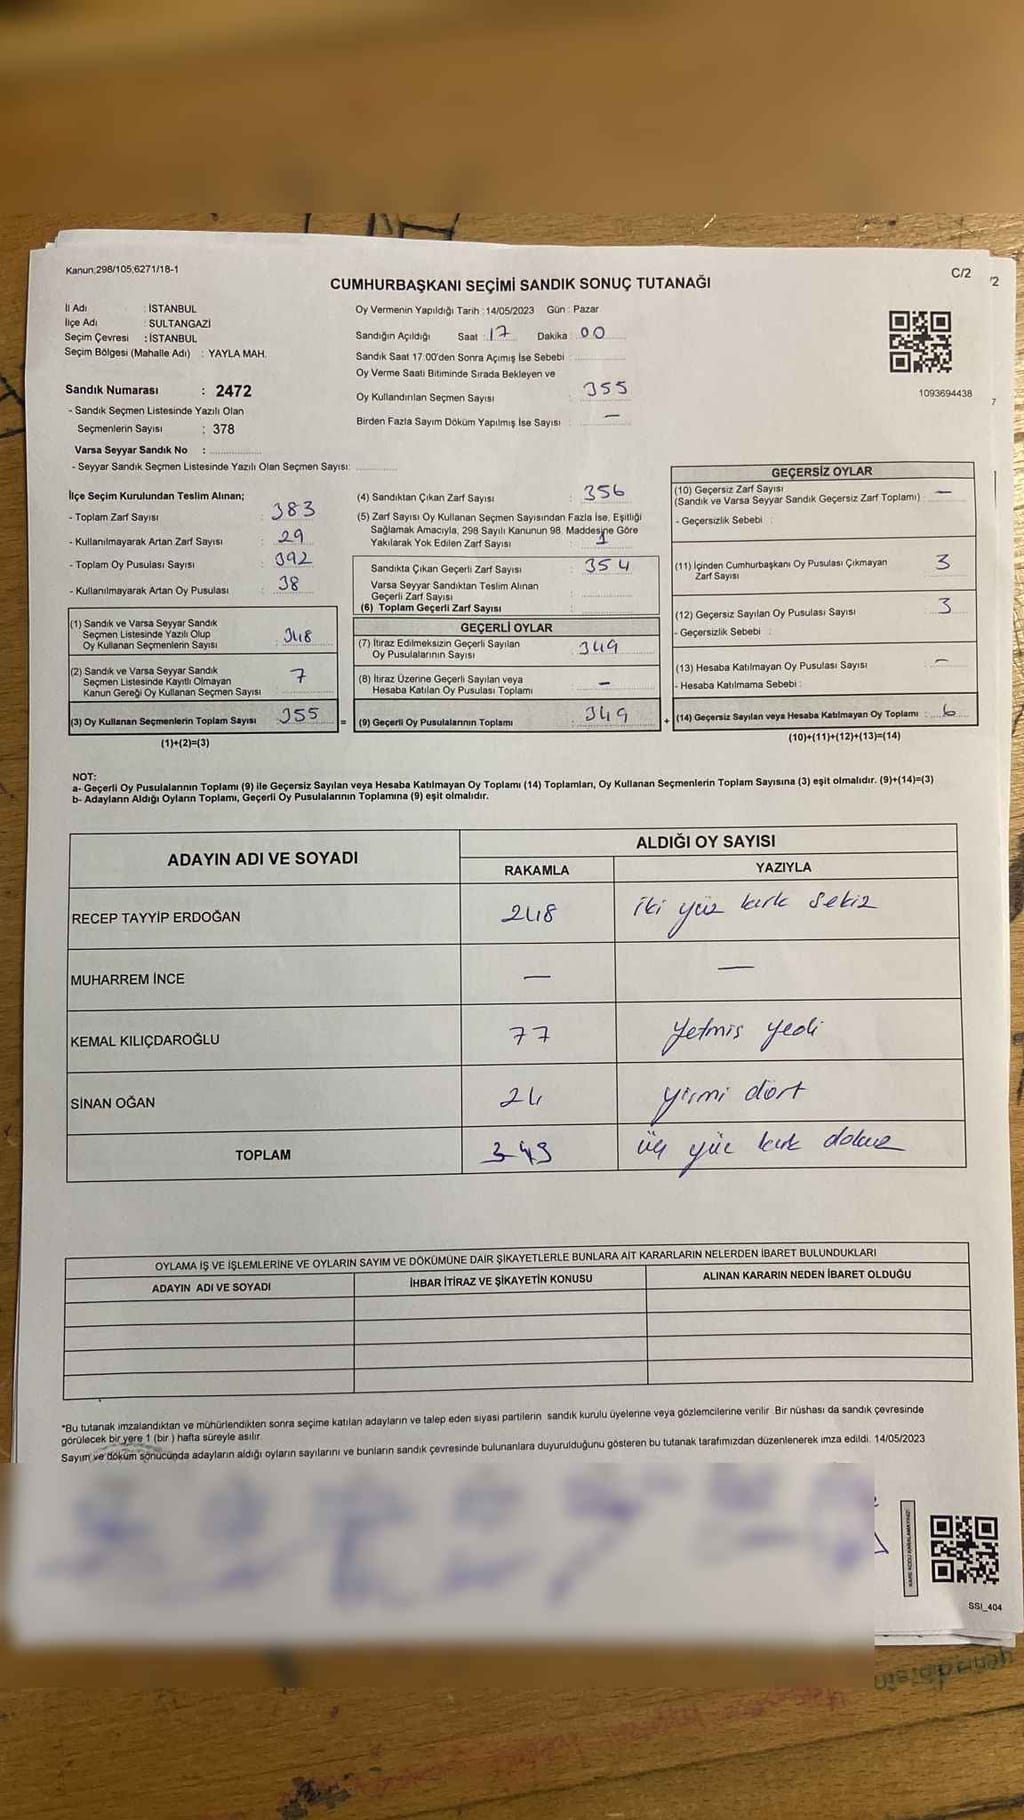 Kanun;298/105;6271/18-1
C/2
/2
CUMHURBAŞKANI SEÇİMİ SANDIK SONUÇ TUTANAĞI
İl Adı : İSTANBUL
İlçe Adı : SULTANGAZİ
Seçim Çevresi : İSTANBUL
Seçim Bölgesi (Mahalle Adı) : YAYLA MAH.
Sandık Numarası : 2472
- Sandık Seçmen Listesinde Yazılı Olan
Seçmenlerin Sayısı : 378
Varsa Seyyar Sandık No :
- Seyyar Sandık Seçmen Listesinde Yazılı Olan Seçmen Sayısı:
Oy Vermenin Yapıldığı Tarih :14/05/2023 Gün : Pazar
Sandığın Açıldığı Saat : 17 Dakika : 00
Sandık Saat 17:00'den Sonra Açımış İse Sebebi :
Oy Verme Saati Bitiminde Sırada Bekleyen ve
Oy Kullandırılan Seçmen Sayısı : 355
Birden Fazla Sayım Döküm Yapılmış İse Sayısı : —
1093694438
7
İlçe Seçim Kurulundan Teslim Alınan;
- Toplam Zarf Sayısı : 383
- Kullanılmayarak Artan Zarf Sayısı : 29
- Toplam Oy Pusulası Sayısı : 392
- Kullanılmayarak Artan Oy Pusulası : 38
(1) Sandık ve Varsa Seyyar Sandık
Seçmen Listesinde Yazılı Olup
Oy Kullanan Seçmenlerin Sayısı : 348
(2) Sandık ve Varsa Seyyar Sandık
Seçmen Listesinde Kayıtlı Olmayan
Kanun Gereği Oy Kullanan Seçmen Sayısı : 7
(3) Oy Kullanan Seçmenlerin Toplam Sayısı : 355 =
(1)+(2)=(3)
(4) Sandıktan Çıkan Zarf Sayısı : 356
(5) Zarf Sayısı Oy Kullanan Seçmen Sayısından Fazla İse, Eşitliği
Sağlamak Amacıyla, 298 Sayılı Kanunun 98. Maddesine Göre
Yakılarak Yok Edilen Zarf Sayısı : 1
Sandıkta Çıkan Geçerli Zarf Sayısı : 354
Varsa Seyyar Sandıktan Teslim Alınan
Geçerli Zarf Sayısı :
(6) Toplam Geçerli Zarf Sayısı :
GEÇERLİ OYLAR
(7) İtiraz Edilmeksizin Geçerli Sayılan
Oy Pusulalarının Sayısı : 349
(8) İtiraz Üzerine Geçerli Sayılan veya
Hesaba Katılan Oy Pusulası Toplamı : —
(9) Geçerli Oy Pusulalarının Toplamı : 349 +
GEÇERSİZ OYLAR
(10) Geçersiz Zarf Sayısı : —
(Sandık ve Varsa Seyyar Sandık Geçersiz Zarf Toplamı)
- Geçersizlik Sebebi :
(11) İçinden Cumhurbaşkanı Oy Pusulası Çıkmayan
Zarf Sayısı : 3
(12) Geçersiz Sayılan Oy Pusulası Sayısı : 3
- Geçersizlik Sebebi :
(13) Hesaba Katılmayan Oy Pusulası Sayısı : —
- Hesaba Katılmama Sebebi :
(14) Geçersiz Sayılan veya Hesaba Katılmayan Oy Toplamı : 6
(10)+(11)+(12)+(13)=(14)
NOT:
a- Geçerli Oy Pusulalarının Toplamı (9) ile Geçersiz Sayılan veya Hesaba Katılmayan Oy Toplamı (14) Toplamları, Oy Kullanan Seçmenlerin Toplam Sayısına (3) eşit olmalıdır. (9)+(14)=(3)
b- Adayların Aldığı Oyların Toplamı, Geçerli Oy Pusulalarının Toplamına (9) eşit olmalıdır.
ADAYIN ADI VE SOYADI ALDIĞI OY SAYISI
RAKAMLA YAZIYLA
RECEP TAYYİP ERDOĞAN 248 iki yüz kırk sekiz
MUHARREM İNCE — —
KEMAL KILIÇDAROĞLU 77 yetmiş yedi
SİNAN OĞAN 24 yirmi dört
TOPLAM 349 üç yüz kırk dokuz
OYLAMA İŞ VE İŞLEMLERİNE VE OYLARIN SAYIM VE DÖKÜMÜNE DAİR ŞİKAYETLERLE BUNLARA AİT KARARLARIN NELERDEN İBARET BULUNDUKLARI
ADAYIN ADI VE SOYADI İHBAR İTİRAZ VE ŞİKAYETİN KONUSU ALINAN KARARIN NEDEN İBARET OLDUĞU
*Bu tutanak imzalandıktan ve mühürlendikten sonra seçime katılan adayların ve talep eden siyasi partilerin sandık kurulu üyelerine veya gözlemcilerine verilir. Bir nüshası da sandık çevresinde
görülecek bir yere 1 (bir) hafta süreyle asılır.
Sayım ve döküm sonucunda adayların aldığı oyların sayılarını ve bunların sandık çevresinde bulunanlara duyurulduğunu gösteren bu tutanak tarafımızdan düzenlenerek imza edildi. 14/05/2023
KARE KODU KARALAMAYINIZ!
SSI_404